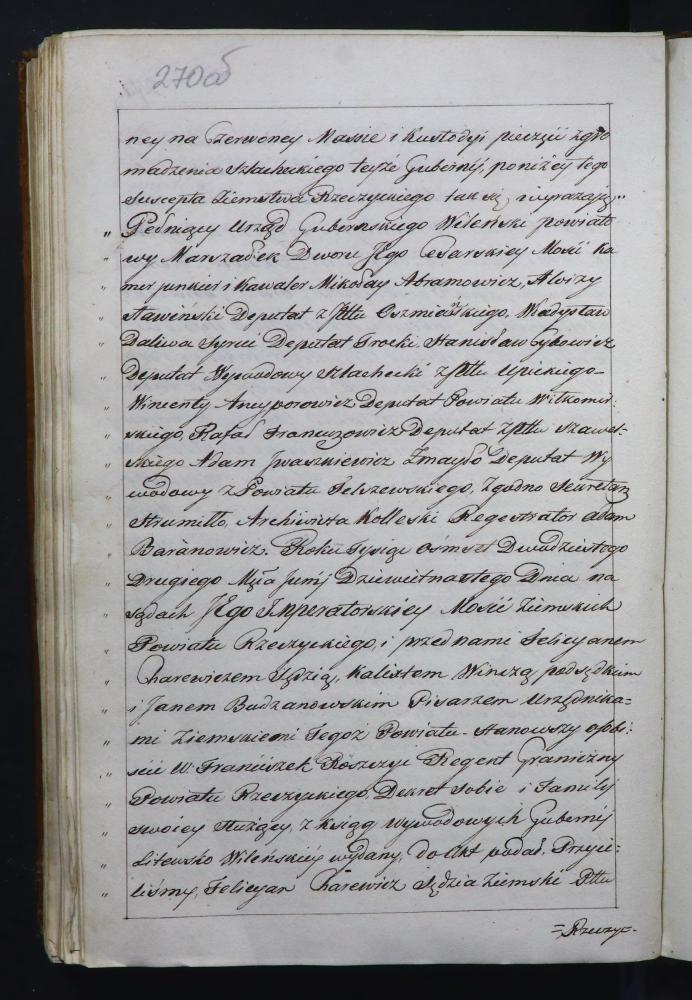 270об
ney na Czerwoney Massie i Kustodyi pieczęci zgro
madzenia szlacheckiego teyże Gubernij, poniżey tego
suscepta Ziemstwa Rzeczyckiego tak się wyrażaią„
„ Pełniący Urząd Gubernskiego Wileński powiato
„ wy Marszałek Dworu JEgo Cesarskiey Mości Ka
„ mer junkier i Kawaler Mikołay Abramowicz, Aloizy
„ Sławiński Deputat z Pttu Oszmiańskiego, Władysław
„ Daliwa Syruć Deputat Trocki, Stanisław
„ Deputat Wywodowy Szlachecki z Pttu Upickiego
„ Wincenty Ancyporowicz Deputat Powiatu Wiłkomir:
„ skiego, Rafał Francuzowicz Deputat z Pttu Szawel:
„ skiego Adam Iwaszkiewicz Deputat Wy
„ wodowy z Powiatu Telszewskiego, Zgodno Sekretarz
„ Strumiłło, Archiwista Kolleski Regestrator Adam
„ Baranowicz. Roku Tysiąc Osmset Dwudziestego
„ Drugiego Mca Junij Dziewietnastego Dnia na
„ sądach JEgo Imperatorskiey Mości Ziemskich
„ Powiatu Rzeczyckiego, i przed nami Felicyanem
„ Charewiczem Sędzią, Kalixtem Winczą podsędkiem
„ i Janem Budzanowskim Pisarzem Urzędnika=
„ mi Ziemskiemi Tegoż Powiatu. Stanowszy osobi:
„ ście W. Franciszek Roszczyc Regent Graniczny
„ Powiatu Rzeczyckiego, Dekret Sobie i Familij
„ swoiey służący, z Ksiąg wywodowych Gubernij
„ Litewsko Wileńskiey wydany, do Akt podał. Przyie:
„ liśmy, Felicyan Charewicz Sędzia Ziemski Pttu
= Rzeczyc=